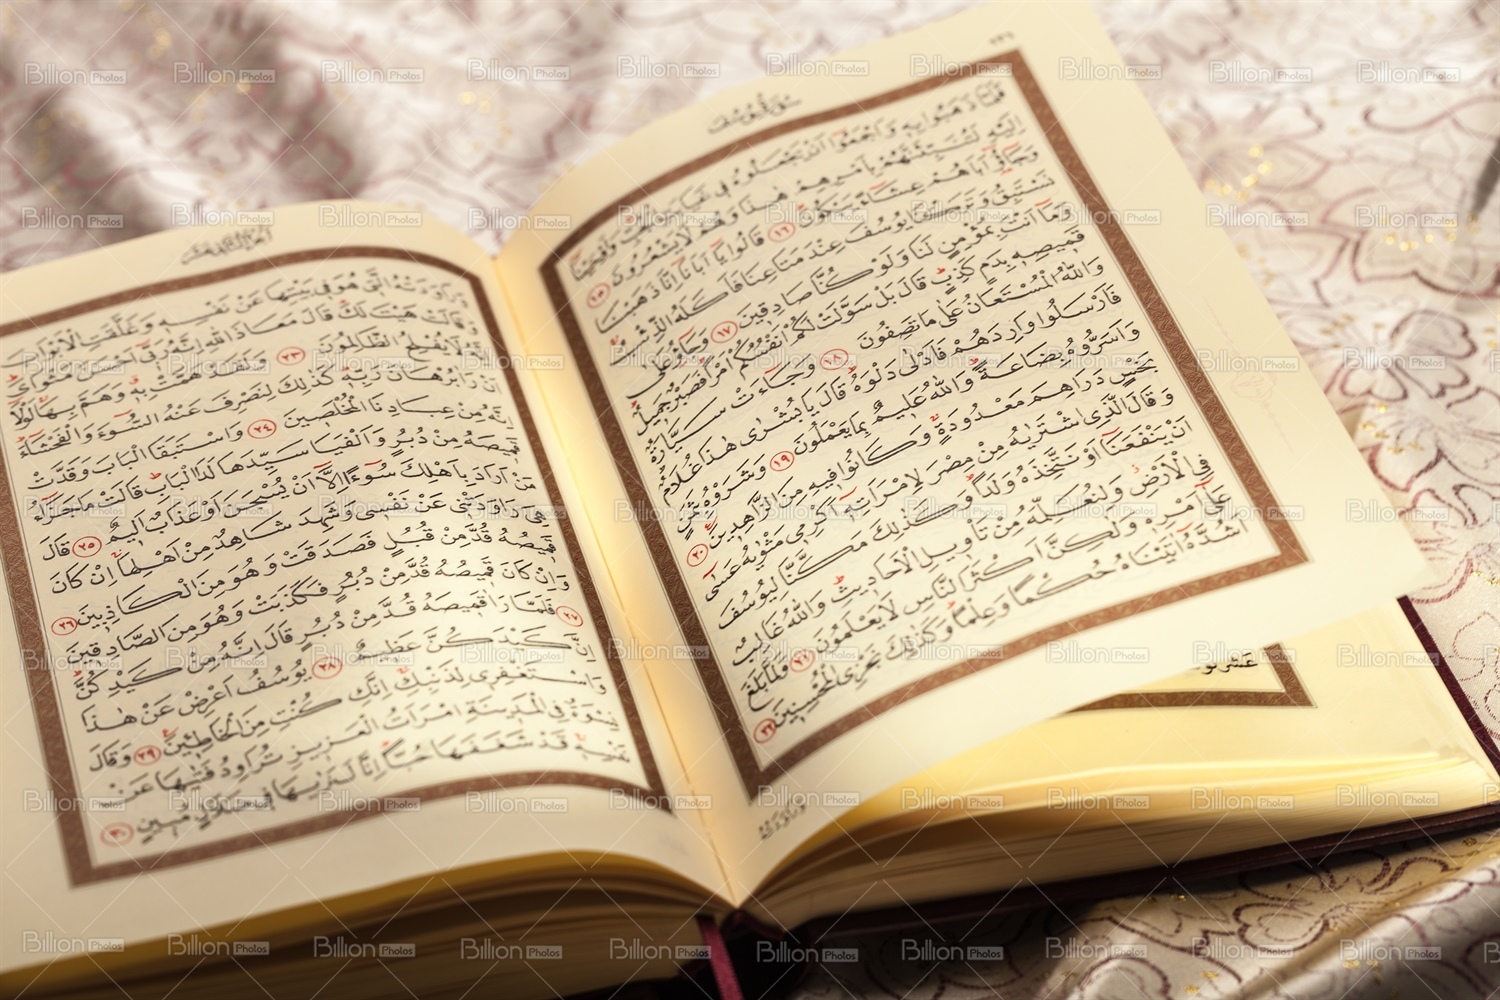 سورة يوسف
فَلَمَّا ذَهَبُوا بِهٖ وَاَجْمَعُٓوا اَنْ يَجْعَلُوهُ فٖى غَيَابَتِ الْجُبِّ وَاَوْحَيْنَٓا
اِلَيْهِ لَتُنَبِّئَنَّهُمْ بِاَمْرِهِمْ هٰذَا وَهُمْ لَا يَشْعُرُونَ ﴿١٥﴾
وَجَٓاؤُٓ اَبَاهُمْ عِشَٓاءً يَبْكُونَ ﴿١٦﴾ قَالُوا يَٓا اَبَانَٓا اِنَّا ذَهَبْنَا
نَسْتَبِقُ وَتَرَكْنَا يُوسُفَ عِنْدَ مَتَاعِنَا فَاَكَلَهُ الذِّئْبُ
وَمَٓا اَنْتَ بِمُؤْمِنٍ لَنَا وَلَوْ كُنَّا صَادِقٖينَ ﴿١٧﴾ وَجَٓاؤُ عَلٰى
قَمٖيصِهٖ بِدَمٍ كَذِبٍ قَالَ بَلْ سَوَّلَتْ لَكُمْ اَنْفُسُكُمْ اَمْرًا فَصَبْرٌ جَمٖيلٌ
وَاللّٰهُ الْمُسْتَعَانُ عَلٰى مَا تَصِفُونَ ﴿١٨﴾ وَجَٓاءَتْ سَيَّارَةٌ
فَاَرْسَلُوا وَارِدَهُمْ فَاَدْلٰى دَلْوَهُ قَالَ يَا بُشْرٰى هٰذَا غُلَامٌ
وَاَسَرُّوهُ بِضَاعَةً وَاللّٰهُ عَلٖيمٌ بِمَا يَعْمَلُونَ ﴿١٩﴾ وَشَرَوْهُ بِثَمَنٍ
بَخْسٍ دَرَاهِمَ مَعْدُودَةٍ وَكَانُوا فٖيهِ مِنَ الزَّاهِدٖينَ ﴿٢٠﴾
وَقَالَ الَّذِى اشْتَرٰيهُ مِنْ مِصْرَ لِامْرَاَتِهٖٓ اَكْرِمٖى مَثْوٰيهُ عَسٰٓى
اَنْ يَنْفَعَنَٓا اَوْ نَتَّخِذَهُ وَلَدًا وَكَذٰلِكَ مَكَّنَّا لِيُوسُفَ
فِى الْاَرْضِ وَلِنُعَلِّمَهُ مِنْ تَاْوٖيلِ الْاَحَادٖيثِ وَاللّٰهُ غَالِبٌ
عَلٰٓى اَمْرِهٖ وَلٰكِنَّ اَكْثَرَ النَّاسِ لَا يَعْلَمُونَ ﴿٢١﴾ وَلَمَّا بَلَغَ
اَشُدَّهُٓ اٰتَيْنَاهُ حُكْمًا وَعِلْمًا وَكَذٰلِكَ نَجْزِى الْمُحْسِنٖينَ ﴿٢٢﴾
وَرَاوَدَتْهُ
وَرَاوَدَتْهُ الَّتٖى هُوَ فٖى بَيْتِهَا عَنْ نَفْسِهٖ وَغَلَّقَتِ الْاَبْوَابَ
وَقَالَتْ هَيْتَ لَكَ قَالَ مَعَاذَ اللّٰهِ اِنَّهُ رَبّٖٓى اَحْسَنَ مَثْوَاىَ
اِنَّهُ لَا يُفْلِحُ الظَّالِمُونَ ﴿٢٣﴾ وَلَقَدْ هَمَّتْ بِهٖ وَهَمَّ بِهَا لَوْلَٓا
اَنْ رَاٰ بُرْهَانَ رَبِّهٖ كَذٰلِكَ لِنَصْرِفَ عَنْهُ السُّٓوءَ وَالْفَحْشَٓاءَ
اِنَّهُ مِنْ عِبَادِنَا الْمُخْلَصٖينَ ﴿٢٤﴾ وَاسْتَبَقَا الْبَابَ وَقَدَّتْ
قَمٖيصَهُ مِنْ دُبُرٍ وَاَلْفَيَا سَيِّدَهَا لَدَا الْبَابِ قَالَتْ مَا جَزَٓاءُ
مَنْ اَرَادَ بِاَهْلِكَ سُٓوءًا اِلَّٓا اَنْ يُسْجَنَ اَوْ عَذَابٌ اَلٖيمٌ ﴿٢٥﴾ قَالَ
هِىَ رَاوَدَتْنٖى عَنْ نَفْسٖى وَشَهِدَ شَاهِدٌ مِنْ اَهْلِهَا اِنْ كَانَ
قَمٖيصُهُ قُدَّ مِنْ قُبُلٍ فَصَدَقَتْ وَهُوَ مِنَ الْكَاذِبٖينَ ﴿٢٦﴾
وَاِنْ كَانَ قَمٖيصُهُ قُدَّ مِنْ دُبُرٍ فَكَذَبَتْ وَهُوَ مِنَ الصَّادِقٖينَ
﴿٢٧﴾ فَلَمَّا رَاٰ قَمٖيصَهُ قُدَّ مِنْ دُبُرٍ قَالَ اِنَّهُ مِنْ كَيْدِكُنَّ
اِنَّ كَيْدَكُنَّ عَظٖيمٌ ﴿٢٨﴾ يُوسُفُ اَعْرِضْ عَنْ هٰذَا
وَاسْتَغْفِرٖى لِذَنْبِكِ اِنَّكِ كُنْتِ مِنَ الْخَاطِـٖٔينَ ﴿٢٩﴾ وَقَالَ
نِسْوَةٌ فِى الْمَدٖينَةِ امْرَاَتُ الْعَزٖيزِ تُرَاوِدُ فَتٰيهَا عَنْ
نَفْسِهٖ قَدْ شَغَفَهَا حُبًّا اِنَّا لَنَرٰيهَا فٖى ضَلَالٍ مُبٖينٍ ﴿٣٠﴾
Billion Photos